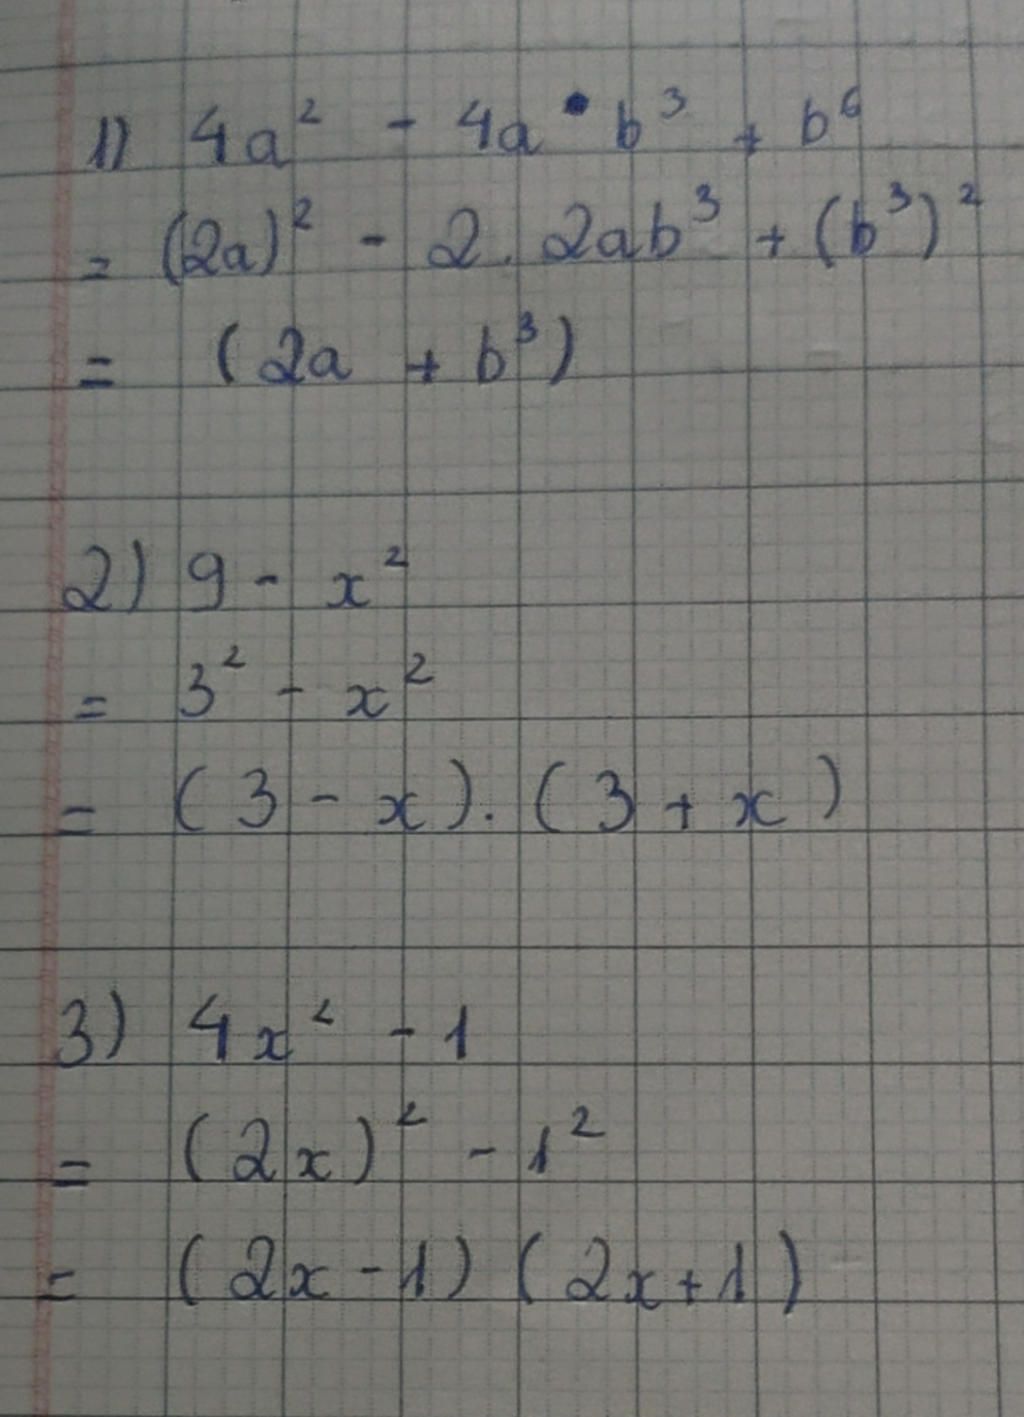 1) 4a² - 4a • b³ + b⁶
= (2a)² - 2. 2ab³ + (b³)²
= (2a + b³)
2) 9 - x²
= 3² - x²
= (3 - x). (3 + x)
3) 4x² - 1
= (2x)² - 1²
= (2x - 1) (2x + 1)